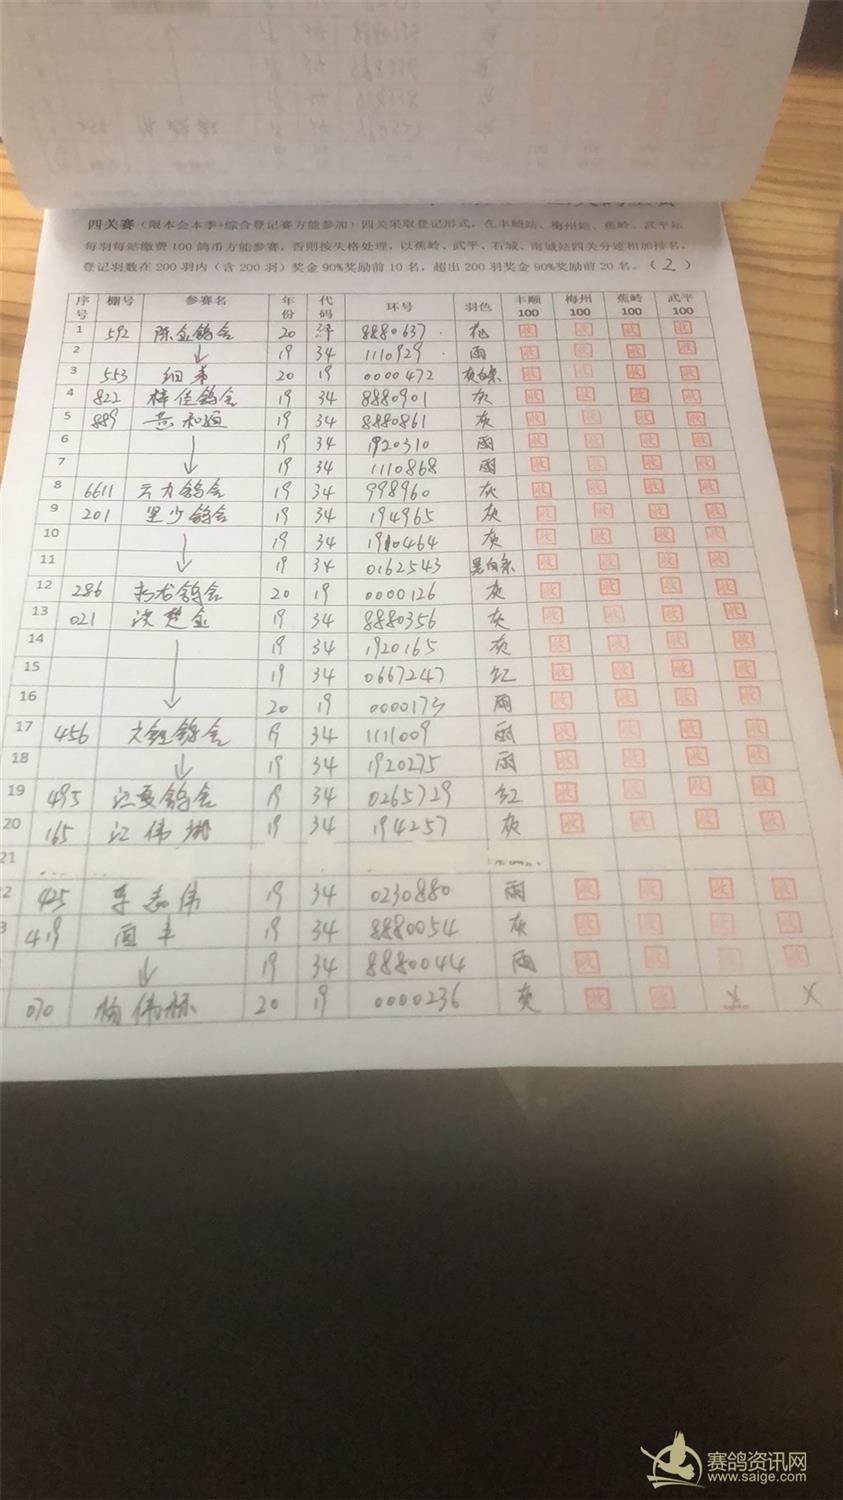 四关赛（限本会本季+综合登记赛方能参加）四关采取登记形式，在丰顺站、梅州站、蕉岭、武平站
每羽每站缴费100鸽币方能参赛，否则按失格处理，以蕉岭、武平、石城、南城站四关分速相加排名，
登记羽数在200羽内（含200羽）奖金90%奖励前10名，超出200羽奖金90%奖励前20名。（2）
序号 棚号 参赛名 年份 代码 环号 羽色 丰顺100 梅州100 蕉岭100 武平100
1 592 陈金鸽舍 20 8880637 花
2 19 34 1110929 雨
3 553 细弟 20 19 0000472 灰白条
4 822 梓佳鸽舍 19 34 8880901 灰
5 889 19 34 8880861 灰
6 19 34 1920310 雨
7 19 34 1110868 雨
8 6611 云力鸽舍 19 34 998960 灰
9 201 里少鸽舍 19 34 194965 灰
10 19 34 1910464 灰
11 19 34 0162543 黑白条
12 286 鸽舍 20 19 0000126 灰
13 021 洪楚金 19 34 8880356 灰
14 19 34 1920165 灰
15 19 34 0667247 红
16 20 19 0000173 雨
17 456 鸽舍 19 34 1111009 雨
18 19 34 1920275 雨
19 495 江夏鸽舍 19 34 0265729 红
20 165 江伟 19 34 194257 灰
21
425 李志伟 19 34 0230880 雨
419 19 34 8880054 灰
19 34 8880044 雨
070 杨伟标 20 19 0000236 灰 X X
赛鸽资讯网
www.saige.com